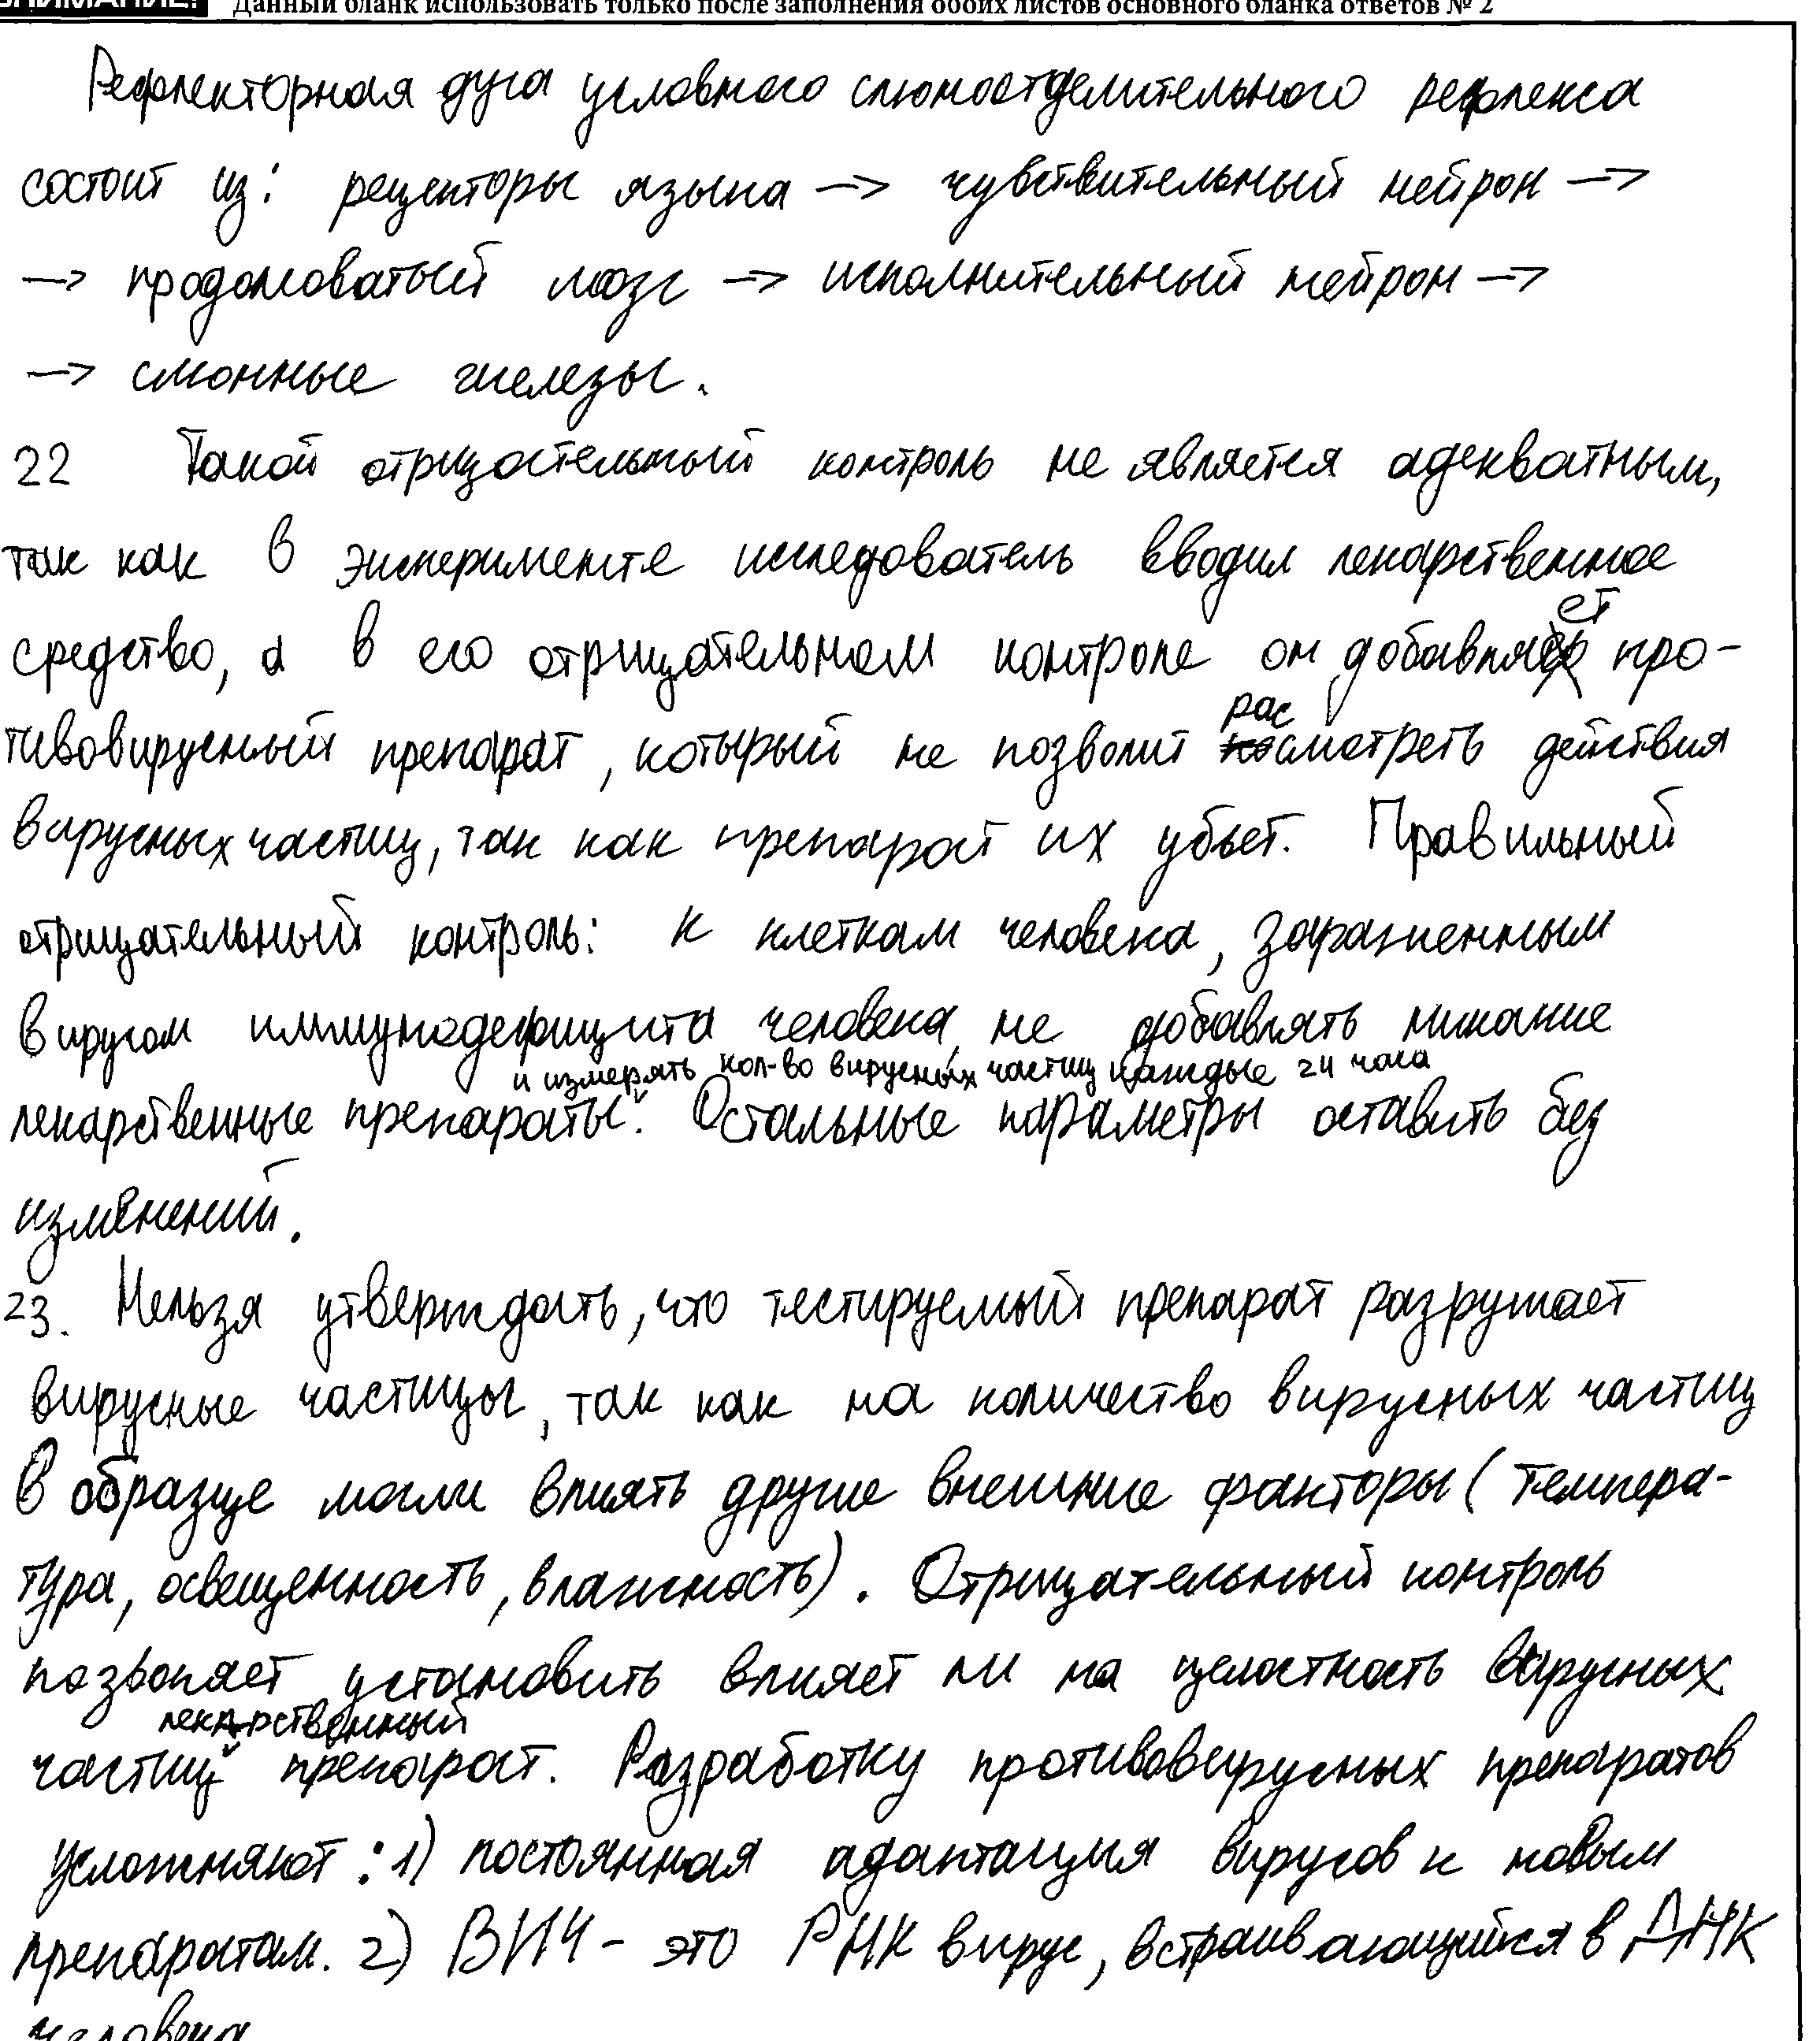 ВНИМАНИЕ! Данный бланк использовать только после заполнения обоих листов основного бланка ответов № 2
Рефлекторная дуга условного слюноотделительного рефлекса
состоит из: рецепторы языка —> чувствительный нейрон —>
—> продолговатый мозг —> исполнительный нейрон —>
—> слюнные железы.
22 Такой отрицательный контроль не является адекватным,
так как в эксперименте исследователь вводил лекарственное
средство, а в его отрицательном контроле он добавляет про-
тивовирусный препарат, который не позволит рассмотреть действия
вирусных частиц, так как препарат их убьет. Правильный
отрицательный контроль: к клеткам человека, зараженным
вирусом иммунодефицита человека не добавлять никакие
и измерять кол-во вирусных частиц каждые 24 часа
лекарственные препараты. Остальные параметры оставить без
изменений.
23. Нельзя утверждать, что тестируемый препарат разрушает
вирусные частицы, так как на количество вирусных частиц
в образце могли влиять другие внешние факторы (темпера-
тура, освещенность, влажность). Отрицательный контроль
позволяет установить влияет ли на целостность вирусных
лекарственный
частиц препарат. Разработку противовирусных препаратов
усложняют: 1) постоянная адаптация вирусов к новым
препаратам. 2) ВИЧ - это РНК вирус, встраивающийся в ДНК
человека